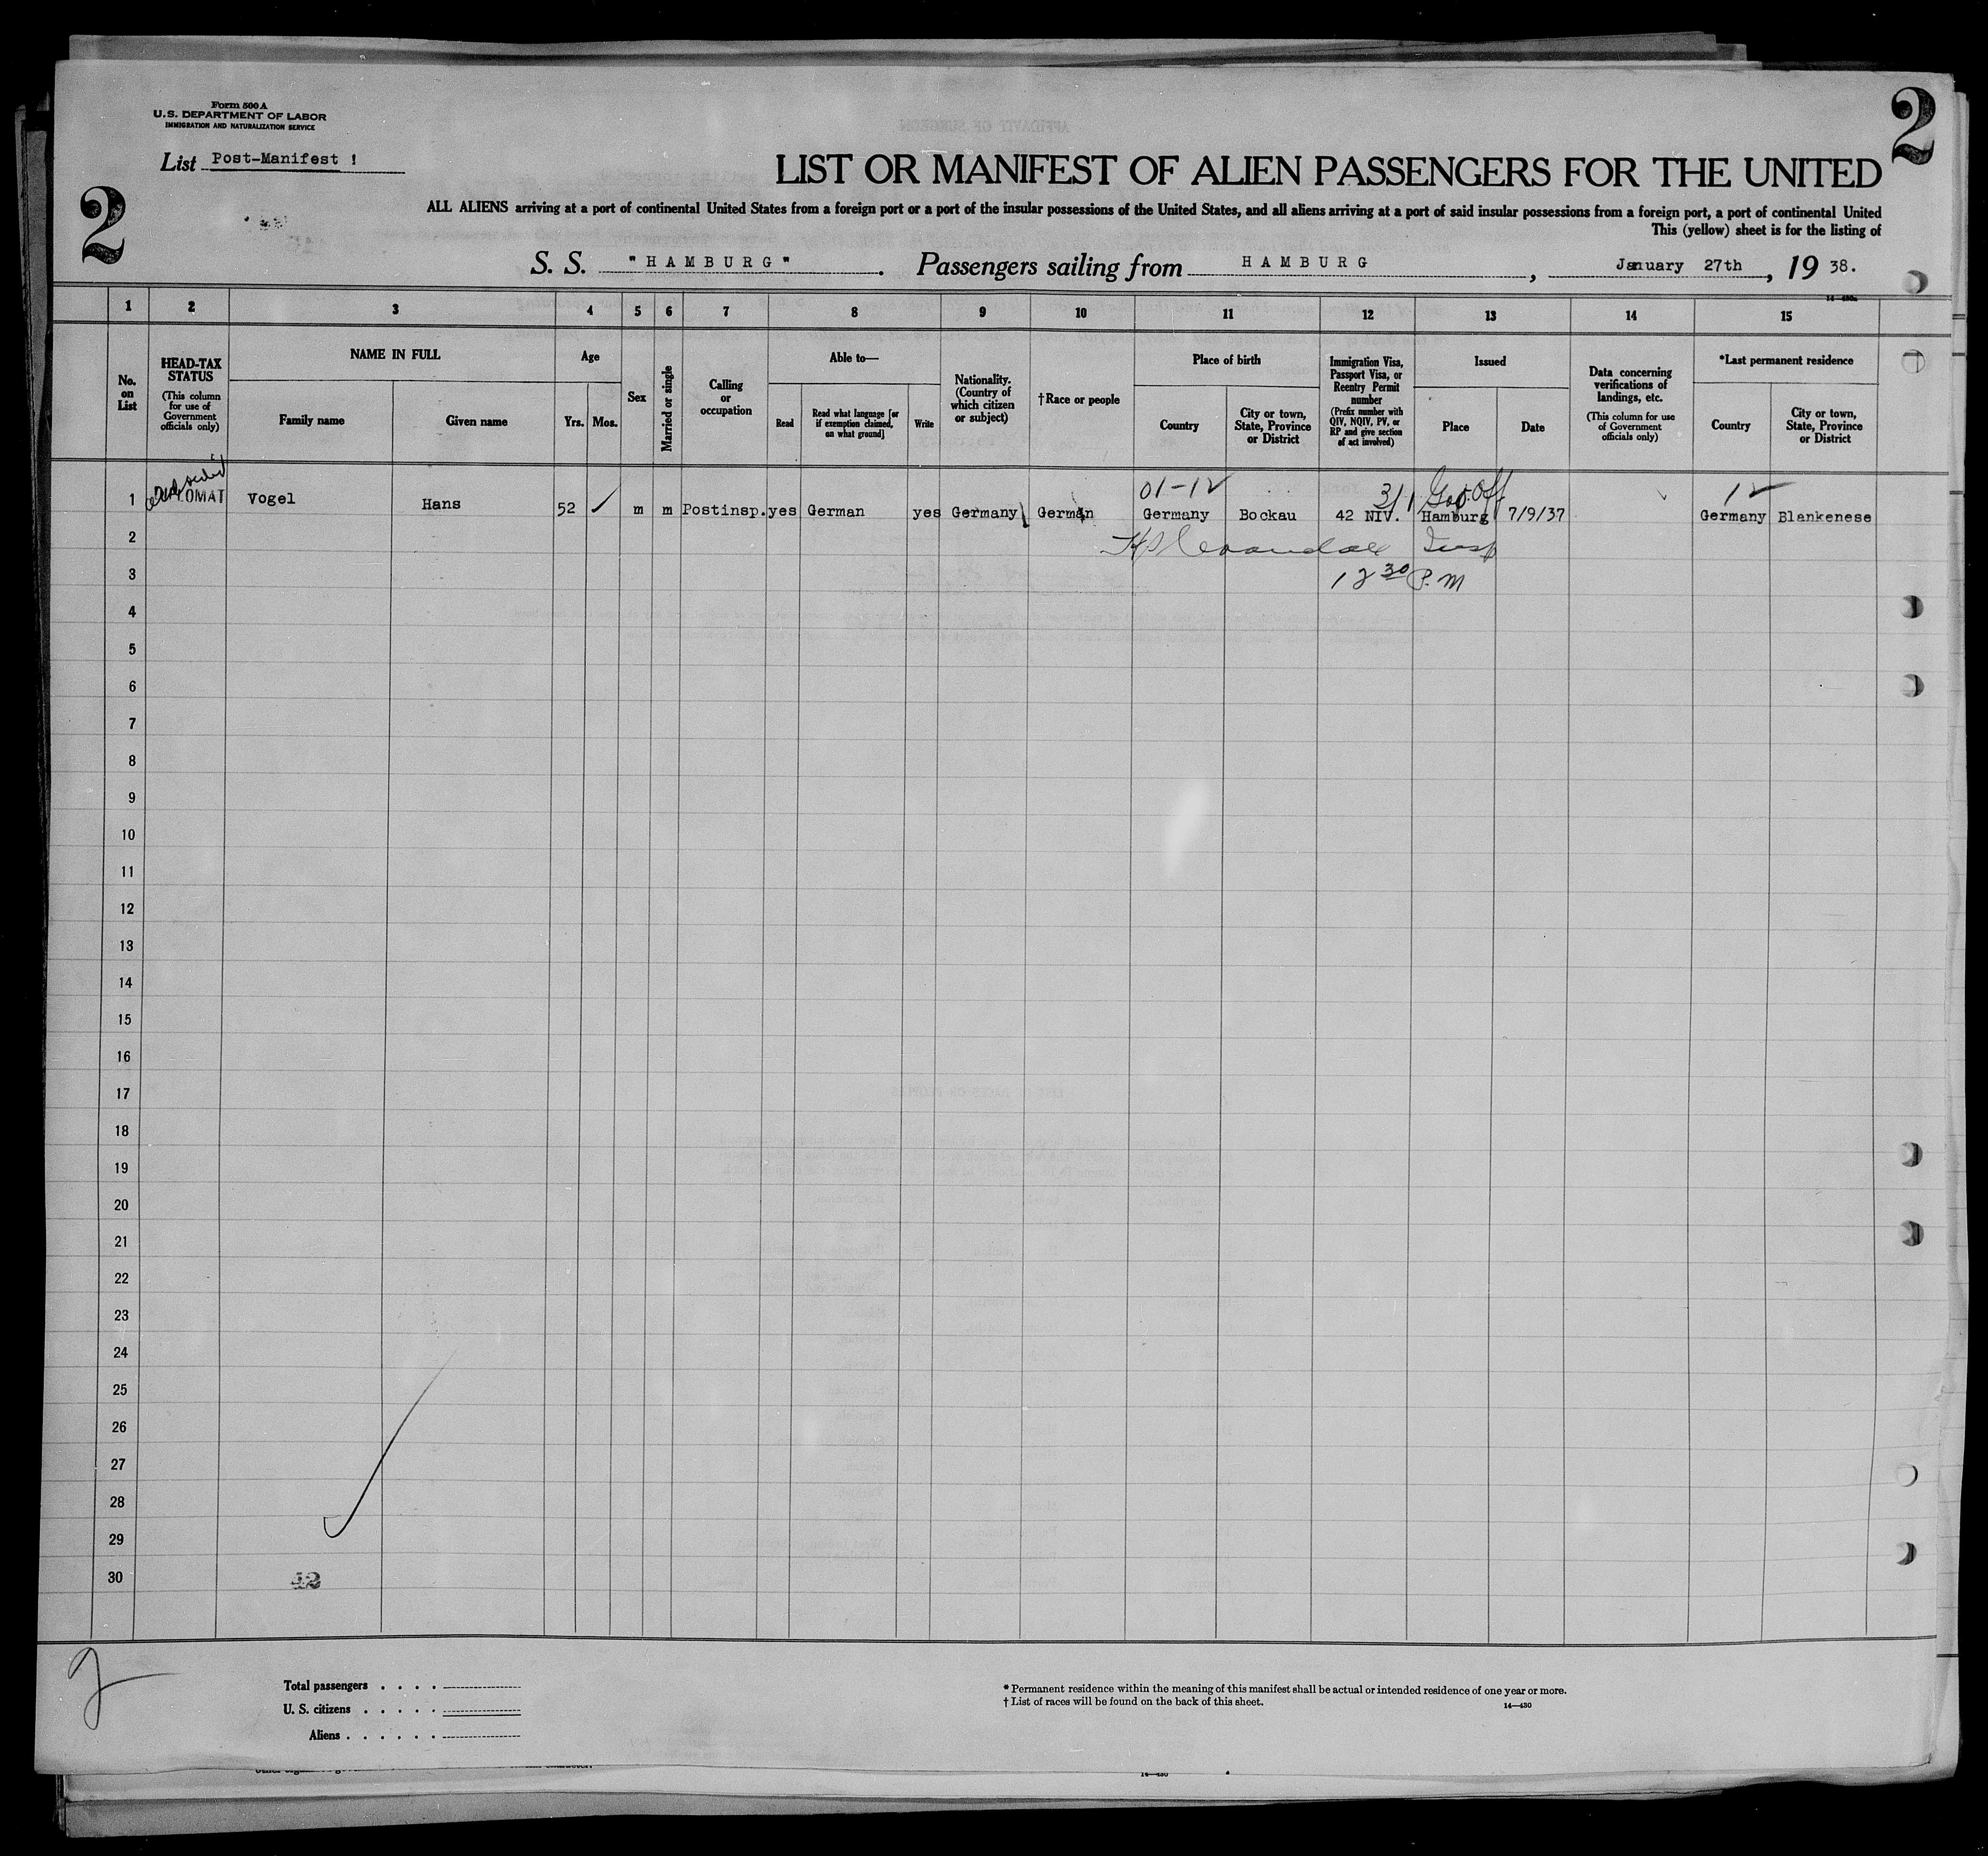 Form 500 A
U.S. DEPARTMENT OF LABOR
IMMIGRATION AND NATURALIZATION SERVICE
List Post-Manifest !
2
2
LIST OR MANIFEST OF ALIEN PASSENGERS FOR THE UNITED
ALL ALIENS arriving at a port of continental United States from a foreign port or a port of the insular possessions of the United States, and all aliens arriving at a port of said insular possessions from a foreign port, a port of continental United
This (yellow) sheet is for the listing of
S. S. "HAMBURG". Passengers sailing from HAMBURG, January 27th, 19 38.
14—430a
1 2 3 4 5 6 7 8 9 10 11 12 13 14 15
No. on List
HEAD-TAX STATUS
(This column for use of Government officials only)
NAME IN FULL
Family name
Given name
Age
Yrs.
Mos.
Sex
Married or single
Calling or occupation
Able to—
Read
Read what language [or if exemption claimed, on what ground]
Write
Nationality. (Country of which citizen or subject)
†Race or people
Place of birth
Country
City or town, State, Province or District
Immigration Visa, Passport Visa, or Reentry Permit number
(Prefix number with QIV, NQIV, PV, or RP and give section of act involved)
Issued
Place
Date
Data concerning verifications of landings, etc.
(This column for use of Government officials only)
*Last permanent residence
Country
City or town, State, Province or District
01-12 3/1 Gov Off 12
1 DIPLOMAT Vogel Hans 52 ✓ m m Postinsp. yes German yes Germany German Germany Bockau 42 NIV. Hamburg 7/9/37 Germany Blankenese
2 Insp
3 12 30 P.M
4
5
6
7
8
9
10
11
12
13
14
15
16
17
18
19
20
21
22
23
24
25
26
27
28
29
30
42
2
Total passengers . . . .
U. S. citizens . . . . .
Aliens . . . . . .
* Permanent residence within the meaning of this manifest shall be actual or intended residence of one year or more.
† List of races will be found on the back of this sheet.
14—430
14—430